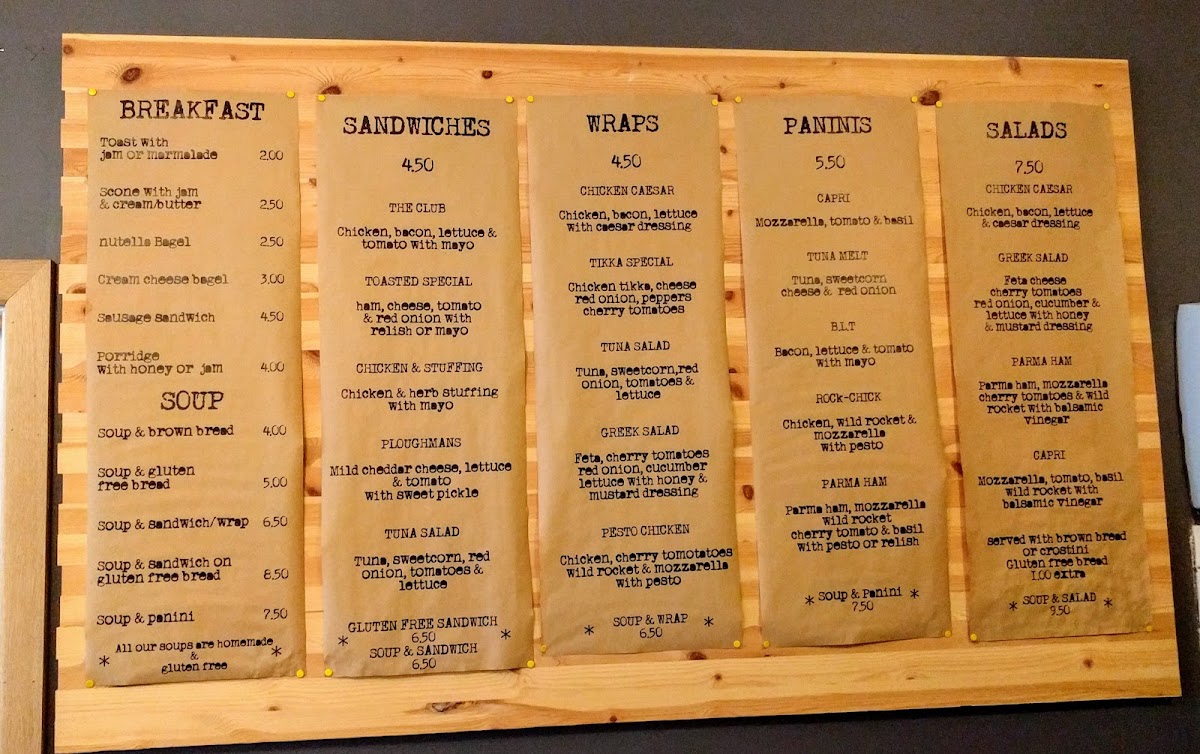 BREAKFAST
Toast with
jam or marmalade 2.00
Scone with jam
& cream/butter 2.50
nutella Bagel 2.50
Cream cheese bagel 3.00
Sausage sandwich 4.50
Porridge
with honey or jam 4.00
SOUP
Soup & brown bread 4.00
Soup & gluten
free bread 5.00
Soup & sandwich/wrap 6.50
Soup & sandwich on
gluten free bread 8.50
Soup & panini 7.50
* All our soups are homemade *
&
gluten free
SANDWICHES
4.50
THE CLUB
Chicken, bacon, lettuce &
tomato with mayo
TOASTED SPECIAL
ham, cheese, tomato
& red onion with
relish or mayo
CHICKEN & STUFFING
Chicken & herb stuffing
with mayo
PLOUGHMANS
Mild cheddar cheese, lettuce
& tomato
with sweet pickle
TUNA SALAD
Tuna, sweetcorn, red
onion, tomatoes &
lettuce
* GLUTEN FREE SANDWICH *
6.50
SOUP & SANDWICH
6.50
WRAPS
4.50
CHICKEN CAESAR
Chicken, bacon, lettuce
with caesar dressing
TIKKA SPECIAL
Chicken tikka, cheese
red onion, peppers
cherry tomatoes
TUNA SALAD
Tuna, sweetcorn,red
onion, tomatoes &
lettuce
GREEK SALAD
Feta, cherry tomatoes
red onion, cucumber
lettuce with honey &
mustard dressing
PESTO CHICKEN
Chicken, cherry tomotatoes
Wild rocket & mozzarella
with pesto
* SOUP & WRAP *
6.50
PANINIS
5.50
CAPRI
Mozzarella, tomato & basil
TUNA MELT
Tuna, sweetcorn
cheese & red onion
B.L.T
Bacon, lettuce & tomato
with mayo
ROCK-CHICK
Chicken, Wild rocket &
mozzarella
with pesto
PARMA HAM
Parma ham, mozzarella
wild rocket
cherry tomato & basil
with pesto or relish
* Soup & Panini *
7.50
SALADS
7.50
CHICKEN CAESAR
Chicken, bacon, lettuce
& caesar dressing
GREEK SALAD
Feta cheese
cherry tomatoes
red onion, cucumber &
lettuce with honey
& mustard dressing
PARMA HAM
Parma ham, mozzarella
cherry tomatoes & wild
rocket with balsamic
vinegar
CAPRI
Mozzarella, tomato, basil
wild rocket with
balsamic vinegar
served with brown bread
or crostini
Gluten free bread
1.00 extra
* SOUP & SALAD *
9.50